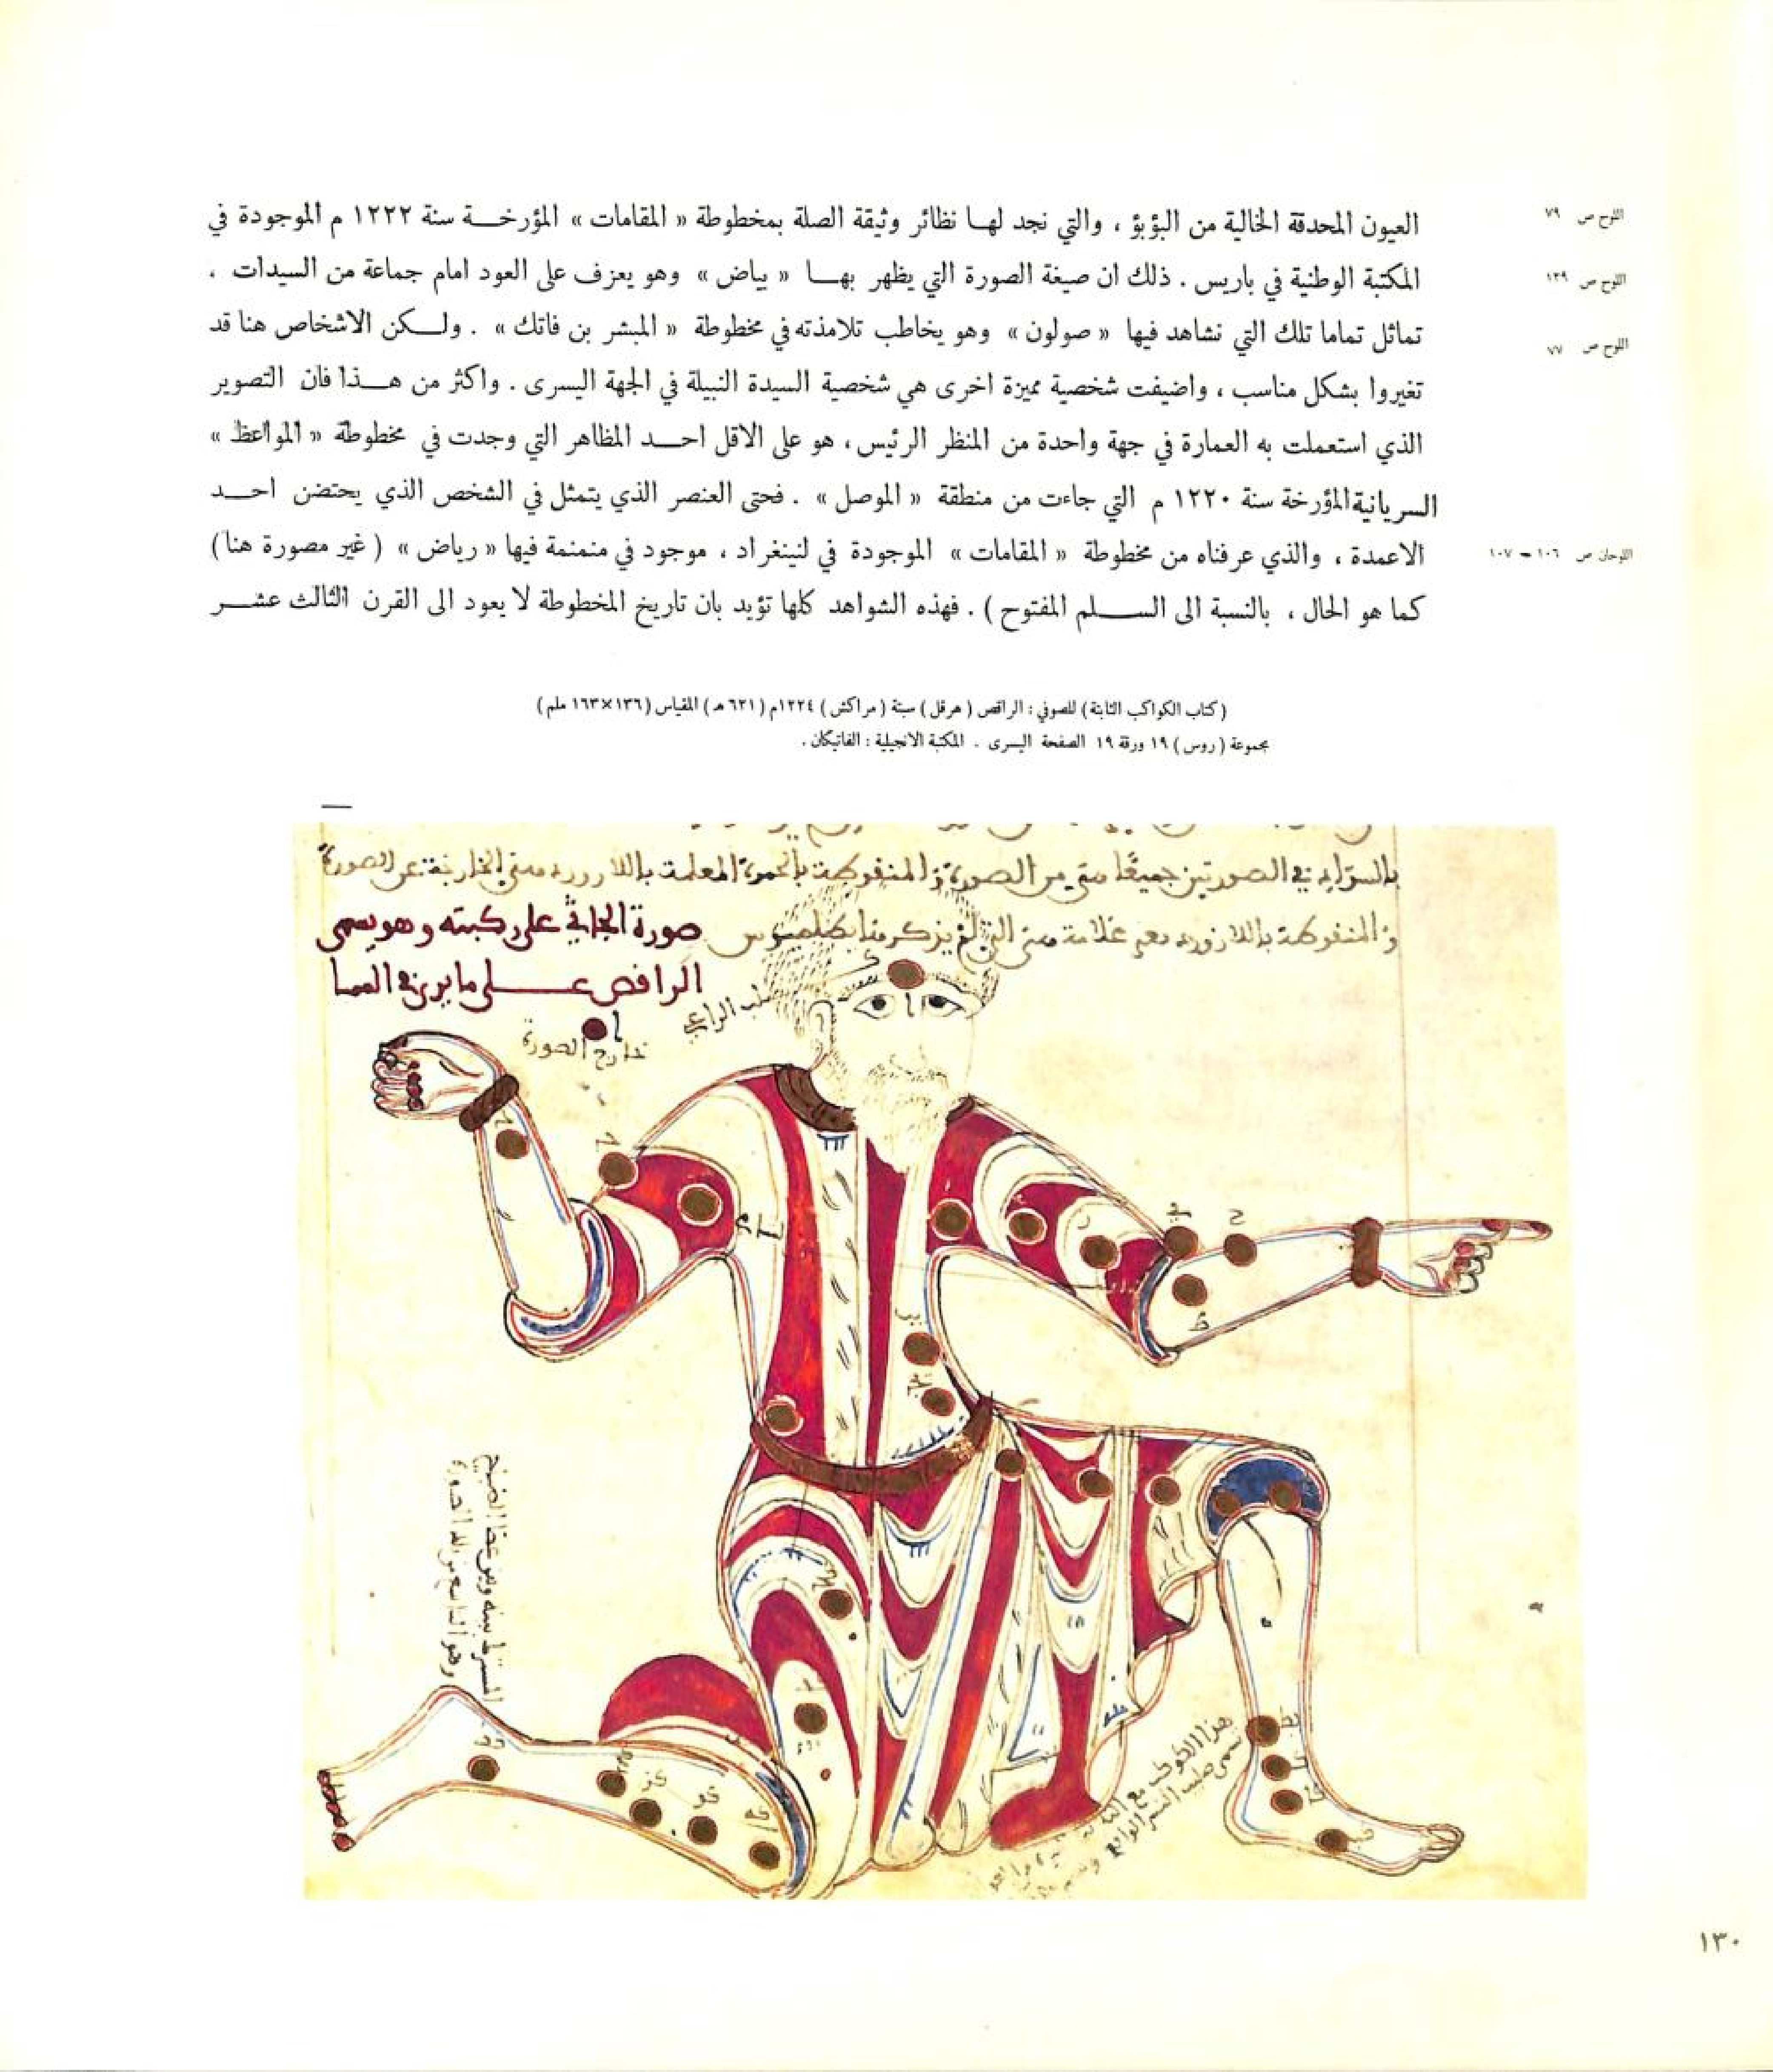 العيون المحدقة الخالية من البؤبؤ ، والتي نجد لهـا نظائر وثيقة الصلة بمخطوطة « المقامات » المؤرخـــة سنة ١٢٢٢ م الموجودة في
اللوح ص ٧٩
المكتبة الوطنية في باريس . ذلك ان صيغة الصورة التي يظهر بهـــا « بياض » وهو يعزف على العود امام جماعة من السيدات ،
اللوح ص ١٢٩
تماثل تماما تلك التي نشاهد فيها « صولون » وهو يخاطب تلامذته في مخطوطة « المبشر بن فاتك » . ولـــكن الاشخاص هنا قد
اللوح ص ٧٧
تغيروا بشكل مناسب ، واضيفت شخصية مميزة اخرى هي شخصية السيدة النبيلة في الجهة اليسرى . واكثر من هـــذا فان التصوير
الذي استعملت به العمارة في جهة واحدة من المنظر الرئيس ، هو على الاقل احـــد المظاهر التي وجدت في مخطوطة « المواعظ »
السريانية المؤرخة سنة ١٢٢٠ م التي جاءت من منطقة « الموصل » . فحتى العنصر الذي يتمثل في الشخص الذي يحتضن احـــد
الاعمدة ، والذي عرفناه من مخطوطة « المقامات » الموجودة في لنينغراد ، موجود في منمنمة فيها « رياض » ( غير مصورة هنا )
اللوحان ص ١٠٦ – ١٠٧
كما هو الحال ، بالنسبة الى الســـلم المفتوح ) . فهذه الشواهد كلها تؤيد بان تاريخ المخطوطة لا يعود الى القرن الثالث عشـــر
( كتاب الكواكب الثابتة ) للصوفي : الراقص ( هرقل ) سبتة ( مراكش ) ١٢٢٤م ( ٦٢١ هـ ) المقياس ( ١٣٦×١٦٣ ملم )
مجموعة ( روس ) ١٩ ورقة ١٩ الصفحة اليسرى . المكتبة الانجيلية : الفاتيكان .
صورة الجاثي على ركبته وهو يسمى
الراقص عـــلى ما يرى في السما
خارج الصورة
١٣٠